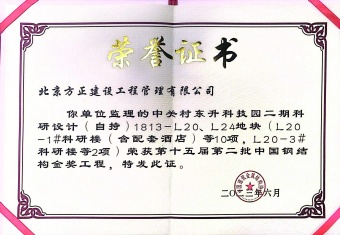 荣誉证书
北京方正建设工程管理有限公司
你单位监理的中关村东升科技园二期科
研设计（自持）1813-L20、L24地块（L20
-1#科研楼（含配套酒店）等10项，L20-3#
科研楼等2项）荣获第十五届第二批中国钢结
构金奖工程，特发此证。
二〇二三年六月